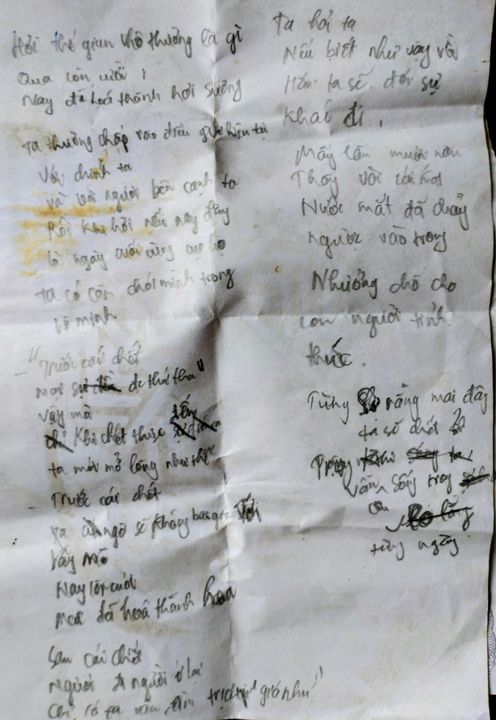 Hỏi thế gian vô thường là gì
Qua còn cười!
Nay đã hoá thành hơi sương
Ta thường chấp vào điều gì hiện tại
Với chính ta
và với người bên cạnh ta
Rồi khi hỏi nếu nay đây
là ngày cuối cùng
ta có còn chói mình trong
vô minh
"Trước cái chết
mọi sự đều dễ thứ tha"
vậy mà
Khi chết thực đến
ta mới mở lòng như thế
Trước cái chết
ta cứ ngỡ sẽ không bao giờ tới
Vậy mà
Nay còn cười
Mai đã hoá thành hoa
Sau cái chết
Người đi người ở lại
Chỉ có ta vẫn
Ta hỏi ta
Nếu biết như vậy rồi
Hẳn ta sẽ đổi sự
khác đi.
Mấy lần mười năm
Thấy với cái
Nước mắt đã chảy
ngược vào trong
Nhường chỗ cho
con người tỉnh
thức.
Từng rằng mai đây
ta sẽ chết
vẫn sống trong
từng ngày